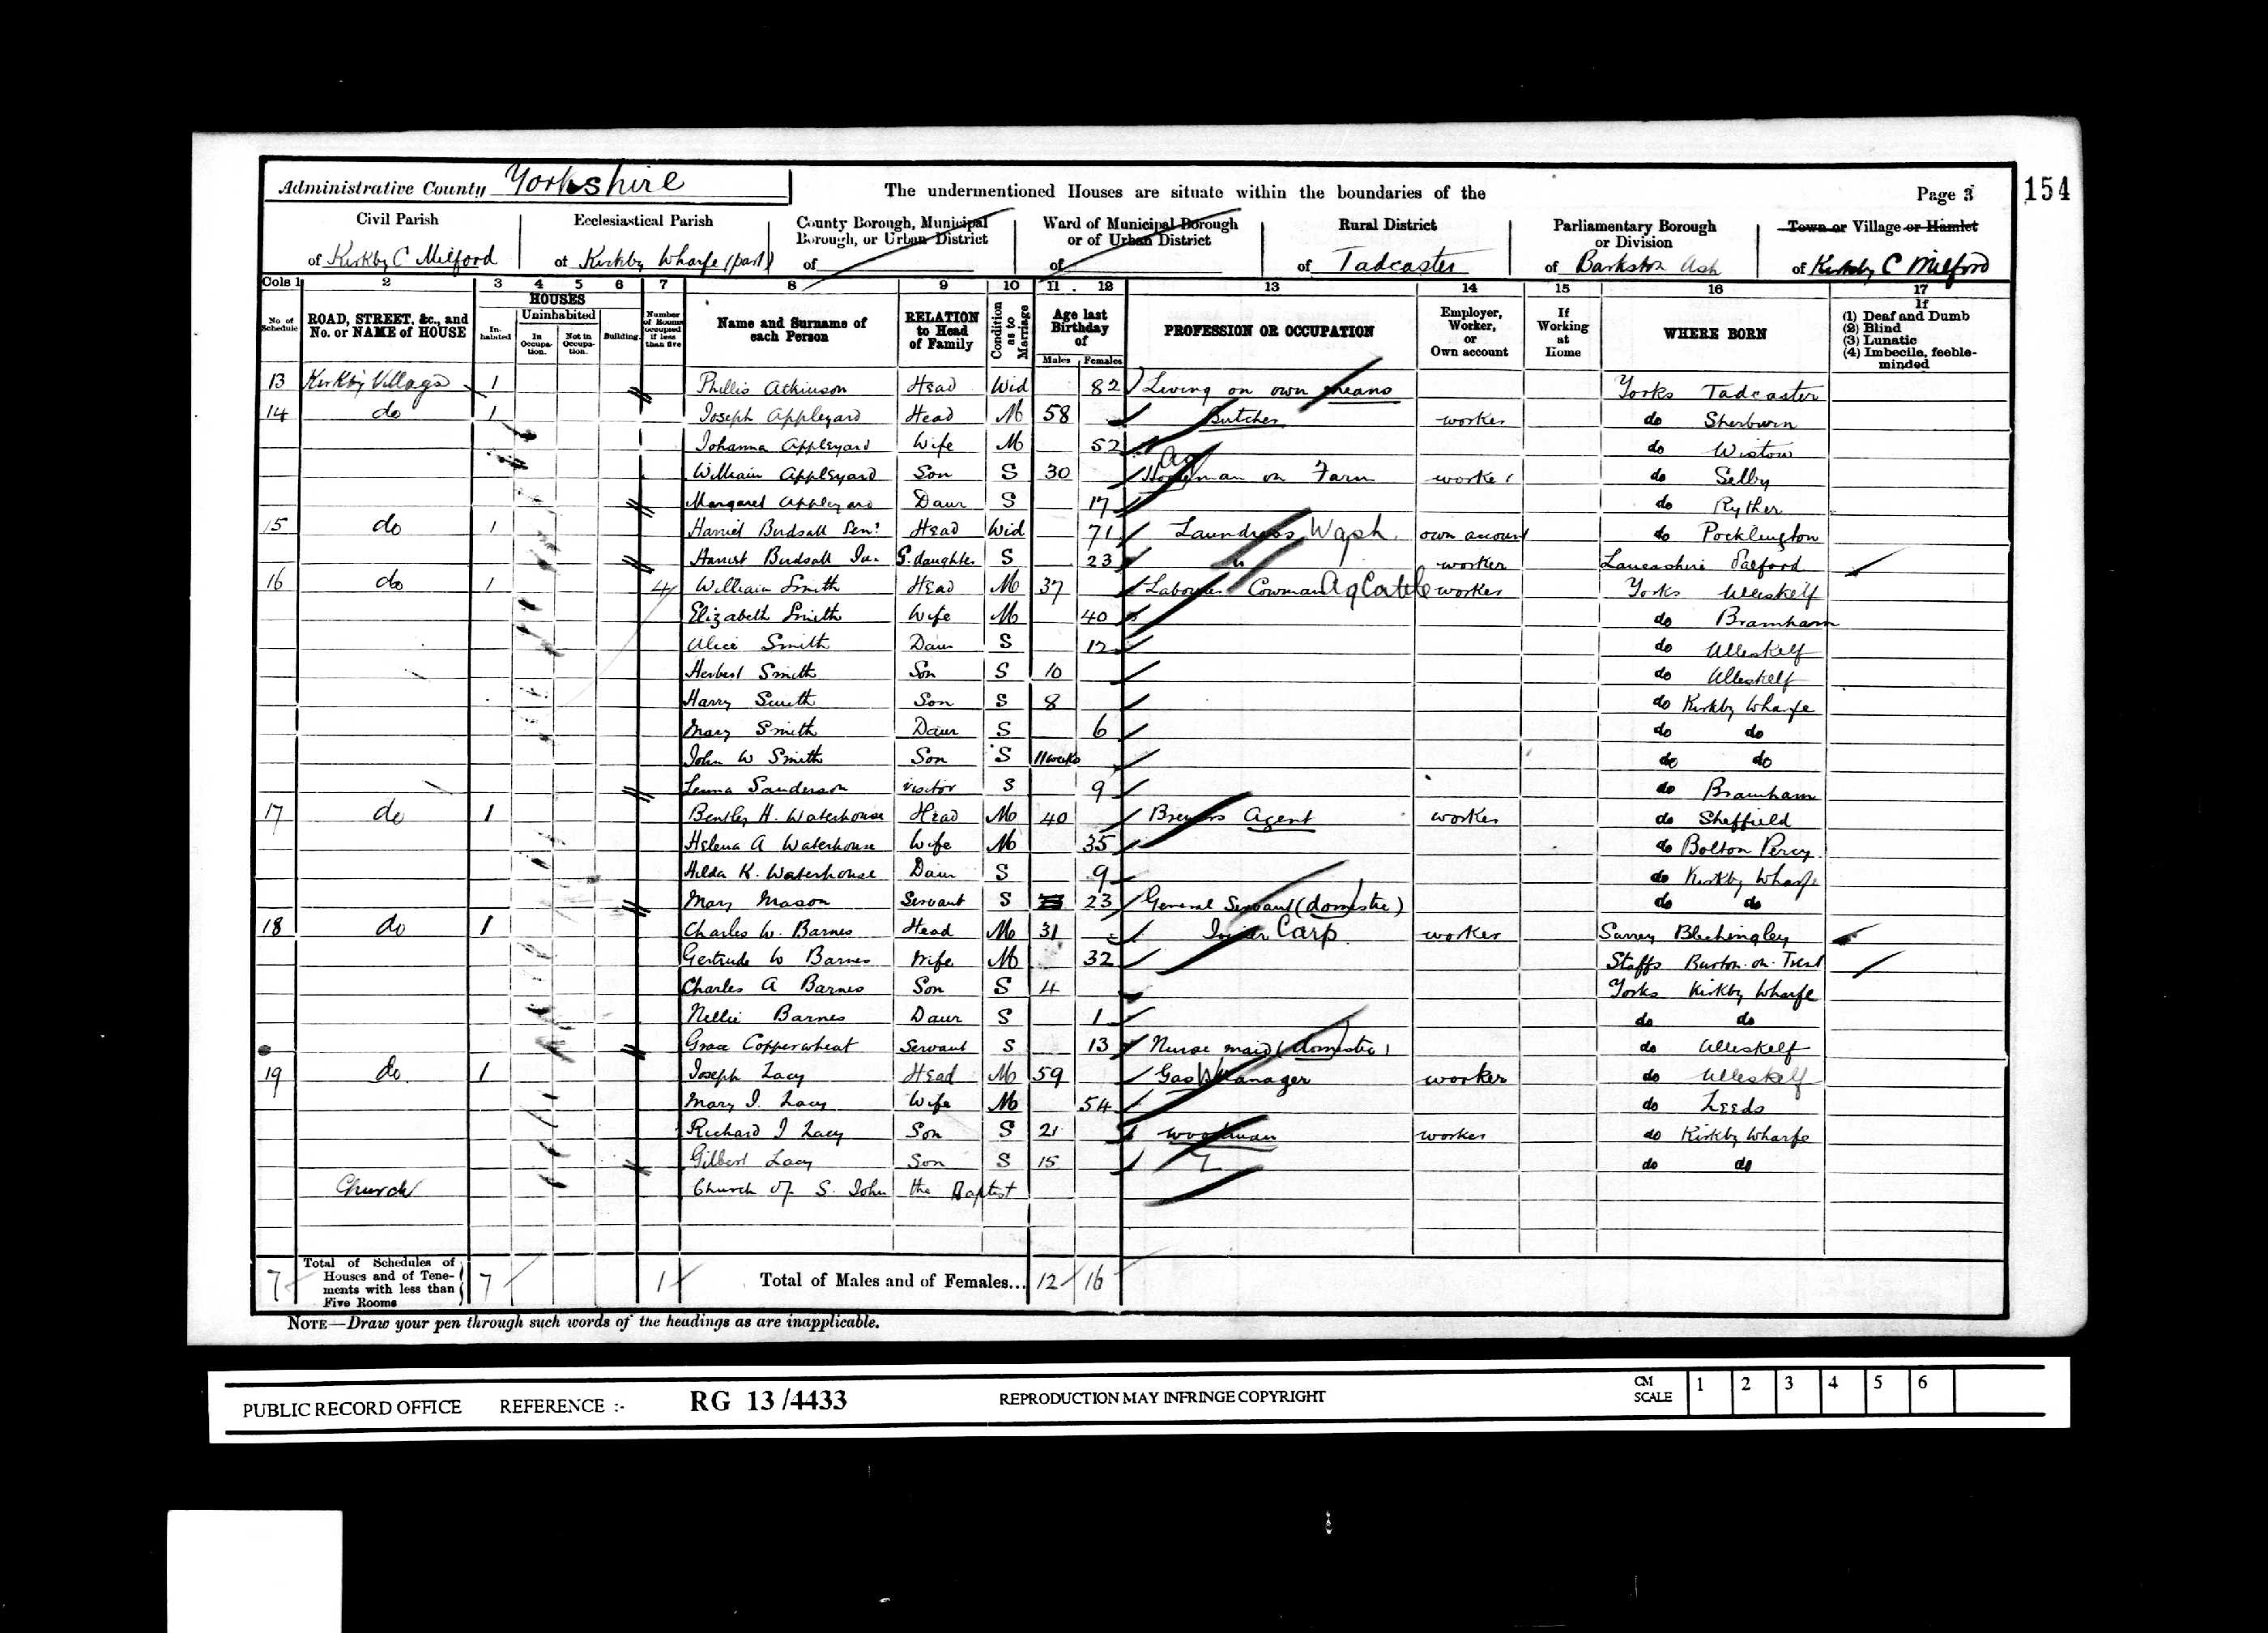 Administrative County Yorkshire
The undermentioned Houses are situate within the boundaries of the
Page 3
154
Civil Parish of Kirkby C Milford
Ecclesiastical Parish of Kirkby Wharfe (part)
County Borough, Municipal Borough, or Urban District of
Ward of Municipal Borough or of Urban District of
Rural District of Tadcaster
Parliamentary Borough or Division of Barkston Ash
Town or Village or Hamlet of Kirkby C Milford
Cols 1 2 3 4 5 6 7 8 9 10 11 12 13 14 15 16 17
No. of Schedule
ROAD, STREET, &c., and No. or NAME of HOUSE
HOUSES
Inhabited
Uninhabited
In Occupation.
Not in Occupation.
Building.
Number of Rooms occupied if less than five
Name and Surname of each Person
RELATION to Head of Family
Condition as to Marriage
Age last Birthday of
Males Females
PROFESSION OR OCCUPATION
Employer, Worker, or Own account
If Working at Home
WHERE BORN
If (1) Deaf and Dumb (2) Blind (3) Lunatic (4) Imbecile, feeble-minded
13 Kirkby Village 1 Phillis Atkinson Head Wid 82 Living on own means Yorks Tadcaster
14 do 1 Joseph Appleyard Head M 58 Butcher worker do Sherburn
Johanna Appleyard Wife M 52 do Wistow
William Appleyard Son S 30 Horseman on Farm Ag worker do Selby
Margaret Appleyard Daur S 17 do Ryther
15 do 1 Harriet Birdsall Senr Head Wid 71 Laundress Wash. own account do Pocklington
Harriet Birdsall Jun G. daughter S 23 " worker Lancashire Salford
16 do 1 4 William Smith Head M 37 Labourer Cowman Ag Cattle worker Yorks Ulleskelf
Elizabeth Smith Wife M 40 do Bramham
Alice Smith Daur S 12 do Ulleskelf
Herbert Smith Son S 10 do Ulleskelf
Harry Smith Son S 8 do Kirkby Wharfe
Mary Smith Daur S 6 do do
John W Smith Son S 11 weeks do do
Sanderson visitor S 9 do Bramham
17 do 1 Bentley H. Waterhouse Head M 40 Brewers Agent worker do Sheffield
Helena A Waterhouse Wife M 35 do Bolton Percy
Hilda K. Waterhouse Daur S 9 do Kirkby Wharfe
Mary Mason Servant S 23 General Servant (domestic) do do
18 do 1 Charles W. Barnes Head M 31 Joiner Carp worker Surrey Blechingley
Gertrude W Barnes Wife M 32 Staffs Burton-on-Trent
Charles A Barnes Son S 4 Yorks Kirkby Wharfe
Nellie Barnes Daur S 1 do do
Grace Copperwheat Servant S 13 Nurse maid (domestic) do Ulleskelf
19 do 1 Joseph Lacy Head M 59 Gas Manager worker do Ulleskelf
Mary J. Lacy Wife M 54 do Leeds
Richard J Lacy Son S 21 woodman worker do Kirkby Wharfe
Gilbert Lacy Son S 15 do do
Church Church of S. John the Baptist
7 Total of Schedules of Houses and of Tenements with less than Five Rooms 7 1 Total of Males and of Females... 12 16
NOTE—Draw your pen through such words of the headings as are inapplicable.
PUBLIC RECORD OFFICE REFERENCE :- RG 13/4433 REPRODUCTION MAY INFRINGE COPYRIGHT CM SCALE 1 2 3 4 5 6